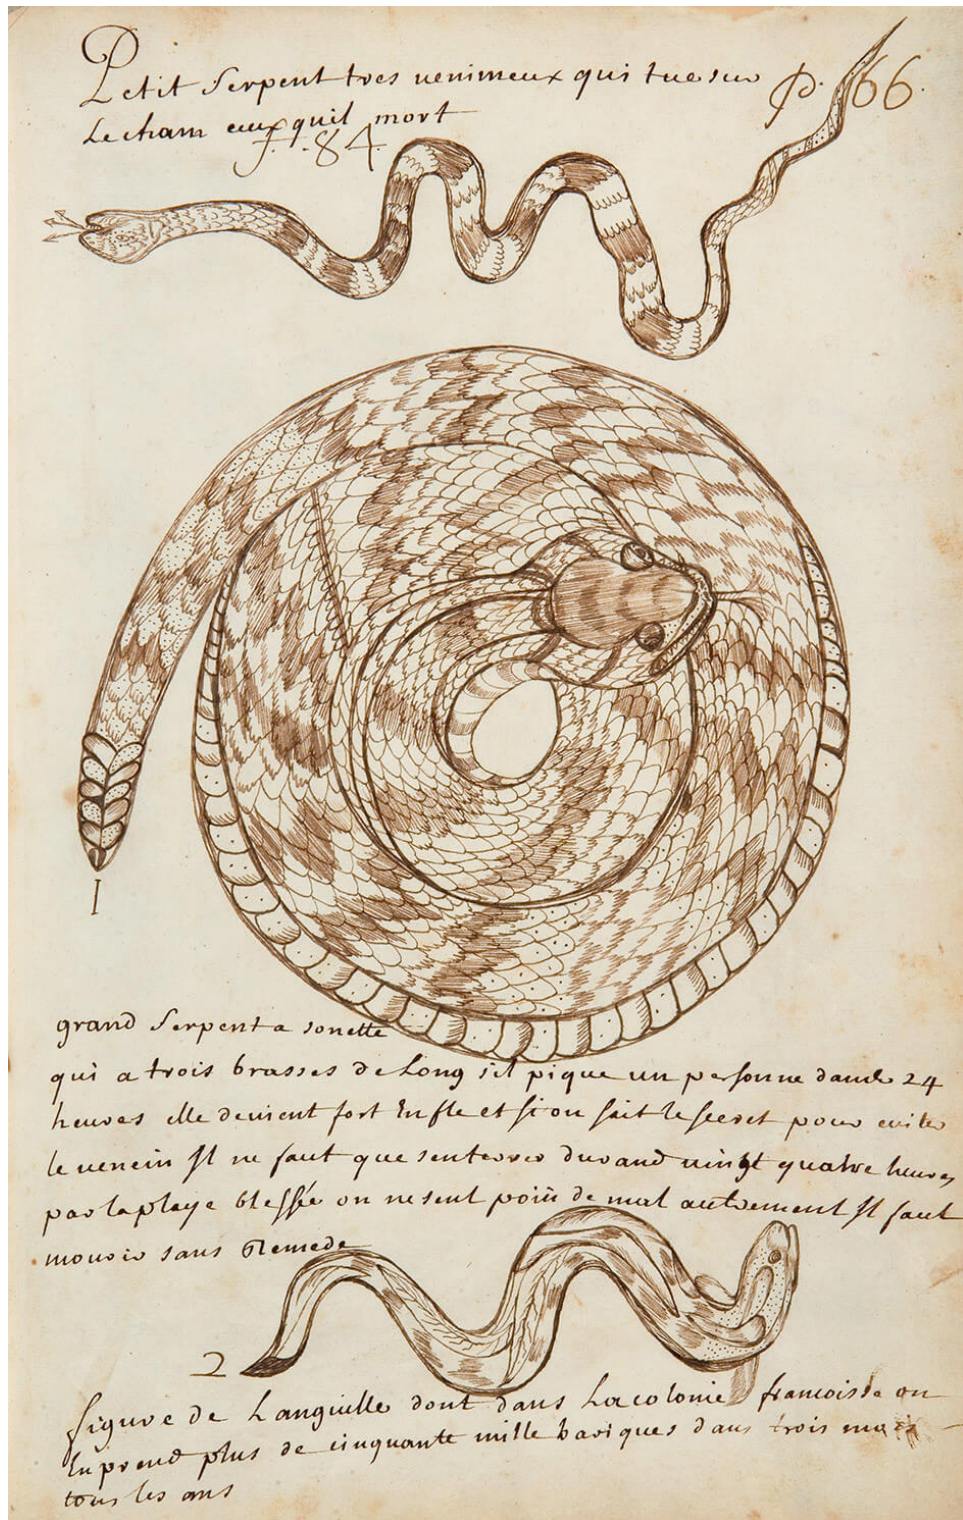 Petit Serpent tres uenimeux qui tue sur
Le cham ceux quil mort
P. 66.
F. 84.
1
grand Serpent a sonette
qui a trois brasses de Long sil pique un personne dans 24
heures elle deuient fort Enfle et si on sait le secret pour euiter
le uenein Il ne faut que senterrer durand uingt quatre heures
par la playe blessée on ne sent poin de mal autrement Il faut
mourir sans Remede
2
figure de Languille dont dans La colonie francoisse on
En prend plus de cinquante mille bariques dans trois mois
tous les ans